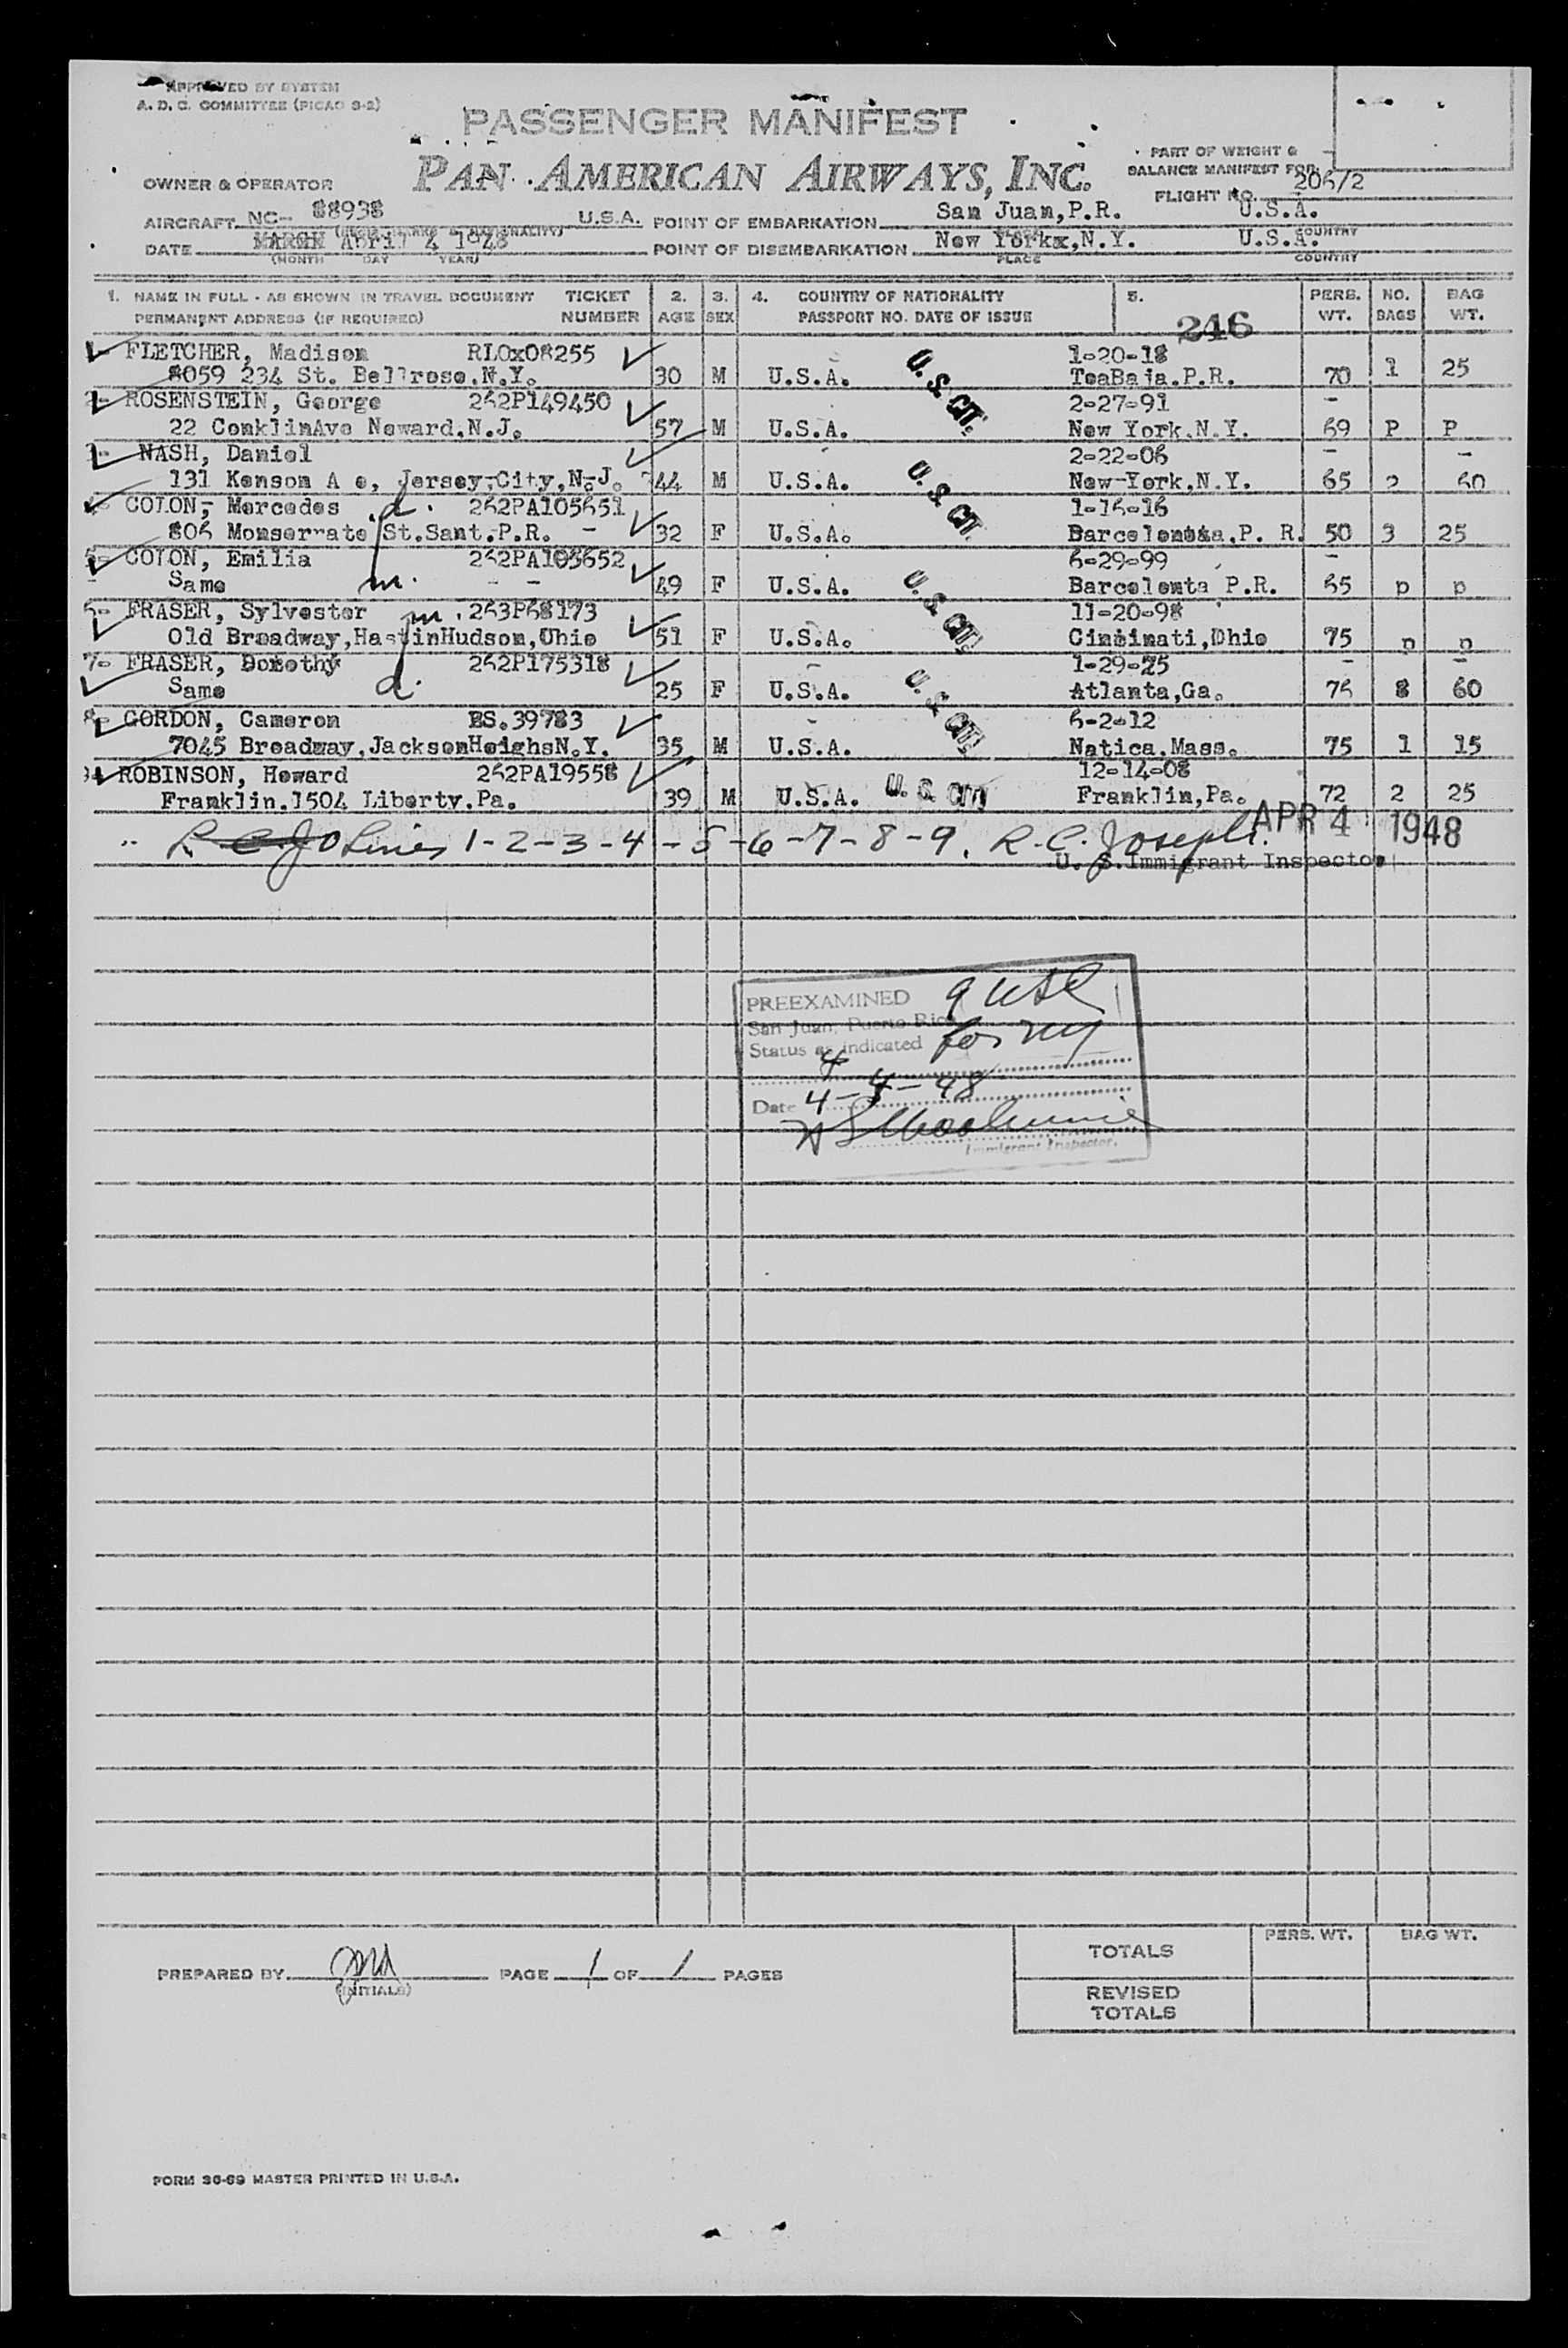 APPROVED BY SYSTEM
A. D. C. COMMITTEE (PICAO 3-2)
PASSENGER MANIFEST
PAN AMERICAN AIRWAYS, INC.
PART OF WEIGHT &
BALANCE MANIFEST FOR
OWNER & OPERATOR
FLIGHT NO. 206/2
AIRCRAFT NC- 88938 U.S.A. POINT OF EMBARKATION San Juan,P.R. U.S.A.
DATE April 4 1948 POINT OF DISEMBARKATION New Yorkx,N.Y. U.S.A.
(MONTH DAY YEAR) PLACE COUNTRY
1. NAME IN FULL - AS SHOWN IN TRAVEL DOCUMENT TICKET 2. 3. 4. COUNTRY OF NATIONALITY 5. PERS. NO. BAG
PERMANENT ADDRESS (IF REQUIRED) NUMBER AGE SEX PASSPORT NO. DATE OF ISSUE 246 WT. BAGS WT.
FLETCHER, Madison RLOx08255 1-20-18
8059 234 St. Bellrose.N.Y. 30 M U.S.A. U. S. CIT. ToaBaja.P.R. 70 1 25
ROSENSTEIN, George 262P149450 2-27-91
22 ConklinAve Neward.N.J. 57 M U.S.A. New York.N.Y. 69 P P
NASH, Daniel 2-22-06
131 Kenson A e, Jersey-City,N.J. 44 M U.S.A. U. S. CIT. New-York,N.Y. 65 2 60
COLON, Mercedes d. 262PA105651 1-16-16
806 Monserrate St.Sant.P.R. 32 F U.S.A. P. R. 50 3 25
5- COLON, Emilia 262PA105652 6-29-99
Same m. 49 F U.S.A. U. S. CIT. Barcelonta P.R. 65 p p
6- FRASER, Sylvester m. 263P68173 11-20-98
Old Broadway,HastinHudson,Ohio 51 F U.S.A. Cincinati,Ohio 75 p p
7- FRASER, Dorothy 262P175318 1-29-25
Same d. 25 F U.S.A. U. S. CIT. Atlanta,Ga. 76 8 60
8- GORDON, Cameron BS.39783 6-2-12
7045 Broadway,JacksonHeighsN.Y. 35 M U.S.A. Natica.Mass. 75 1 15
ROBINSON, Howard 262PA19558 12-14-08
Franklin.1504 Liberty.Pa. 39 M U.S.A. U. S. CIT. Franklin,Pa. 72 2 25
Lines 1-2-3-4-5-6-7-8-9. R.C. Joseph. APR 4 1948
U. S. Immigrant Inspector
PREEXAMINED 9 USC
San Juan, Puerto Rico
Status as indicated for NY
Date 4-4-48
Immigrant Inspector.
PREPARED BY PAGE 1 OF 1 PAGES
(INITIALS)
PERS. WT. BAG WT.
TOTALS
REVISED
TOTALS
FORM 36-69 MASTER PRINTED IN U.S.A.